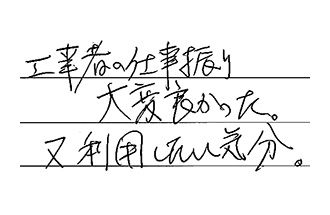 工事者の仕事振り
大変良かった。
又利用したい気分。